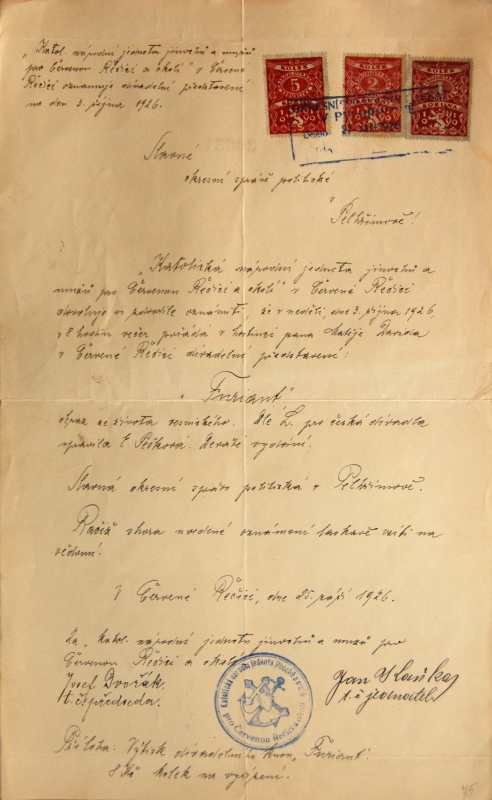 „Katol. národní jednota jinochů a mužů
pro Červenou Řečici a okolí" v Červené
Řečici oznamuje divadelní představení
na den 3. října 1926.
KOLEK
5
KOLEK
2
KOLEK
KORUNA
Slavné
okresní správě politické
v
Pelhřimově!
„Katolická národní jednota jinochů a
mužů pro Červenou Řečici a okolí" v Červené Řečici
dovoluje si podepsaně oznámiti, že v neděli, dne 3. října 1926,
v 8 hodin večer pořádá v hostinci pana Matěje Davida
v Červené Řečici divadelní představení:
„Furiant"
obraz ze života vesnického. Dle L. pro česká divadla
upravila E. Pešková. Deváté vydání.
Slavná okresní správo politická v Pelhřimově.
Račiž shora uvedené oznámení laskavě vzíti na
vědomí.
V Červené Řečici, dne 25. září 1926.
Za „Katol. národní jednotu jinochů a mužů pro
Červenou Řečici a okolí
Josef Dvořák,
t. č. předseda.
Jan
t. č. jednatel
Katolická národní jednota jinochů a mužů
pro Červenou Řečici a okolí
Příloha: Výtisk divadelního kusu „Furiant".
8 Kč kolek na vyřízení.
75